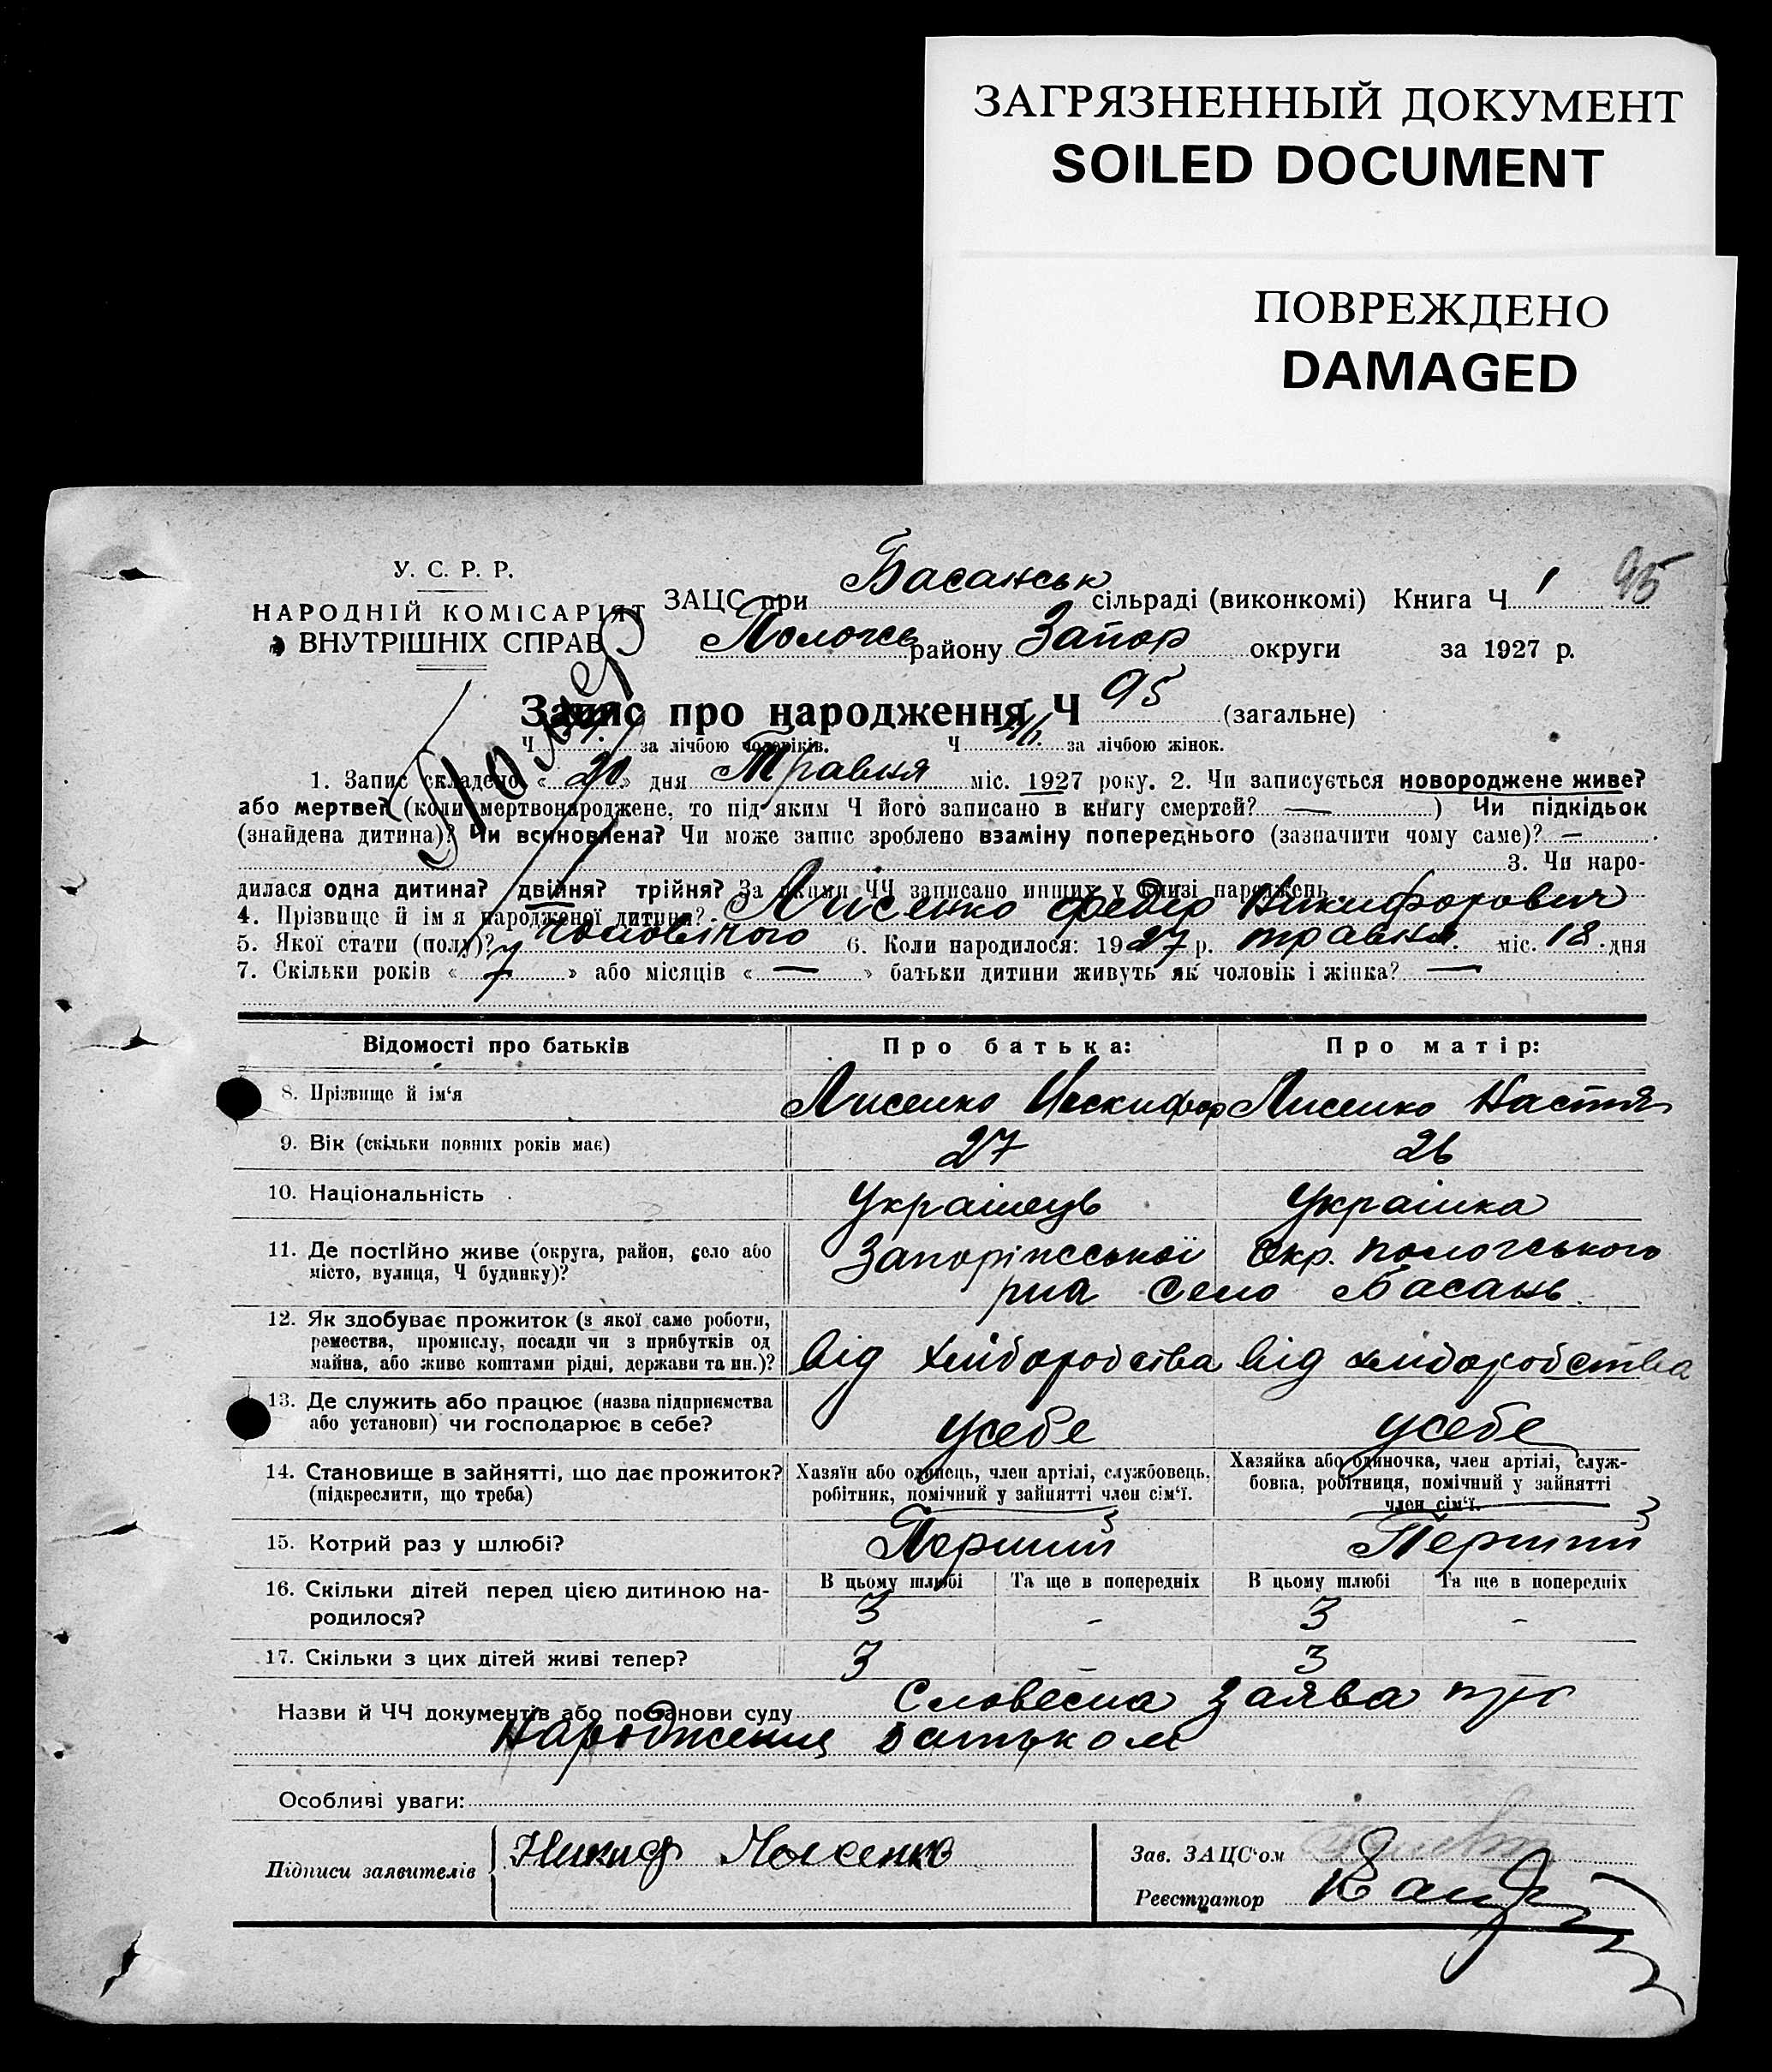 ЗАГРЯЗНЕННЫЙ ДОКУМЕНТ
SOILED DOCUMENT
ПОВРЕЖДЕНО
DAMAGED
У. С. Р. Р.
НАРОДНІЙ КОМІСАРІЯТ
ВНУТРІШНІХ СПРАВ
ЗАЦС при Басанськ сільраді (виконкомі) Книга Ч 1 95
Пологов району Запор округи за 1927 р.
Запис про народження Ч 95 (загальне)
Ч за лічбою чоловіків. Ч 46. за лічбою жінок.
1. Запис складено « 20 » дня Травня міс. 1927 року. 2. Чи записується новороджене живе?
або мертве? (коли мертвонароджене, то під яким Ч його записано в книгу смертей? — ) Чи підкідьок
(знайдена дитина)? Чи всиновлена? Чи може запис зроблено взаміну попереднього (зазначити чому саме)? —
3. Чи наро-
дилася одна дитина? двійня? трійня? За якими ЧЧ записано инших у книзі народжень
4. Прізвище й ім я народженої дитини? Лисенко Федір Никифорович
5. Якої стати (полу)? чоловічого 6. Коли народилося: 1927 р. травня. міс. 18. дня
7. Скільки років « 7 » або місяців « — » батьки дитини живуть як чоловік і жінка? —
Відомості про батьків Про батька: Про матір:
8. Прізвище й ім'я Лисенко Никифор Лисенко Настя
9. Вік (скільки повних років має) 27 26
10. Національність Украінець Украінка
11. Де постійно живе (округа, район, село або Запоріжської Окр. Пологського
місто, вулиця, Ч будинку)? р-на Село Басань.
12. Як здобуває прожиток (з якої саме роботи,
ремества, промислу, посади чи з прибутків од
майна, або живе коштами рідні, держави та ин.)? від хлібородства від хлібородства
13. Де служить або працює (назва підприємства
або установи) чи господарює в себе? усебе усебе
14. Становище в зайнятті, що дає прожиток? Хазяїн або одинець, член артілі, службовець, Хазяйка або одиночка, член артілі, служ-
(підкреслити, що треба) робітник, помічний у зайнятті член сім'ї. бовка, робітниця, помічний у зайнятті
член сім'ї.
15. Котрий раз у шлюбі? Перший Перший
16. Скільки дітей перед цією дитиною на- В цьому шлюбі Та ще в попередніх В цьому шлюбі Та ще в попередніх
родилося? 3 - 3 -
17. Скільки з цих дітей живі тепер? 3 3
Назви й ЧЧ документів або постанови суду Словесна заява про
народження батьком
Особливі уваги:
Підписи заявителів Никиф Лысенко
Зав. ЗАЦС'ом
Реєстратор